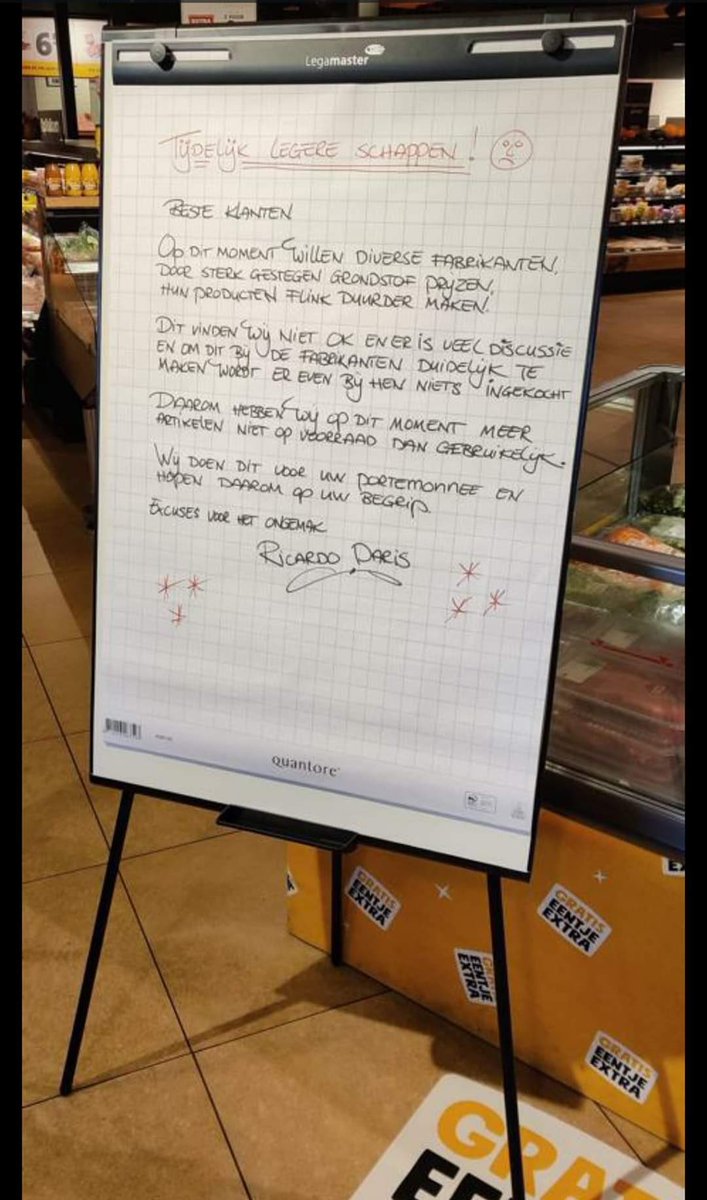 Legamaster
TIJDELIJK LEGERE SCHAPPEN!
BESTE KLANTEN
OP DIT MOMENT WILLEN DIVERSE FABRIKANTEN,
DOOR STERK GESTEGEN GRONDSTOF PRYZEN,
HUN PRODUCTEN FLINK DUURDER MAKEN.
DIT VINDEN WIJ NIET OK EN ER IS VEEL DISCUSSIE
EN OM DIT BIJ DE FABRIKANTEN DUIDELIJK TE
MAKEN WORDT ER EVEN BIJ HEN NIETS INGEKOCHT
DAAROM HEBBEN WIJ OP DIT MOMENT MEER
ARTIKELEN NIET OP VOORRAAD DAN GEBRUIKELIJK.
WIJ DOEN DIT VOOR UW PORTEMONNEE EN
HOPEN DAAROM OP UW BEGRIP
EXCUSES VOOR HET ONGEMAK
RICARDO DARIS
quantore
GRATIS
EENTJE
EXTRA
GRATIS
EENTJE
EXTRA
GRATIS
EENTJE
EXTRA
GRATIS
EENTJE
EXTRA